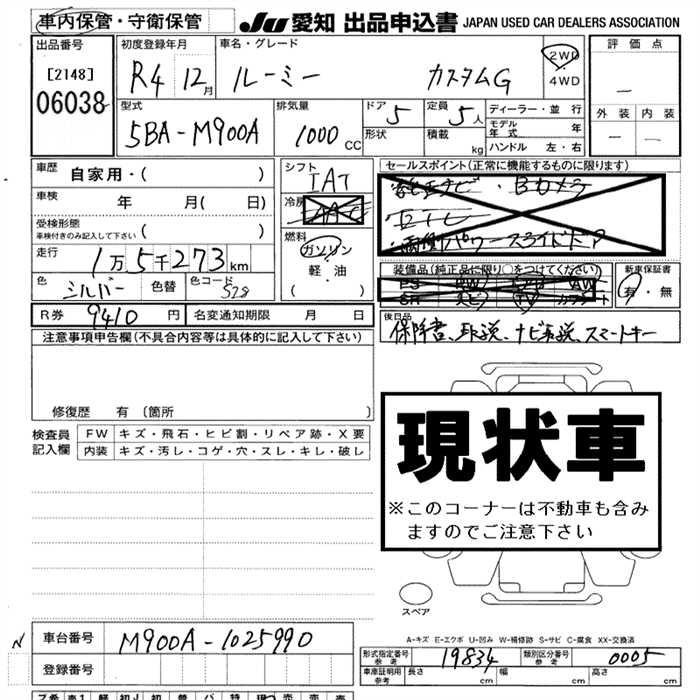 車内保管・守衛保管 JU 愛知 出品申込書 JAPAN USED CAR DEALERS ASSOCIATION
出品番号 初度登録年月 車名・グレード 評価点
[2148] R4 12月 ルーミー カスタムG 2WD・4WD
06038 —
型式 排気量 ドア 5 定員 5人 ディーラー・並行 外装 内装
5BA-M900A 1000cc 形状 積載 kg モデル年式 年 — —
ハンドル 左・右
車歴 自家用・( ) シフト IAT セールスポイント(正常に機能するものに限ります)
車検 年 月( 日) 冷房 AAC 純正ナビ・Bカメラ
受検形態 ETC
車検付きのみ記入して下さい ( ) 燃料 ・両側パワースライドドア
走行 1万5千273km ガソリン 装備品(純正品に限り○をつけてください) 新車保証書
軽・油 PS PW AW 有・無
色 シルバー 色替 色コード S28 ( ) SR ナビ TV カワシート
R券 9410円 名変通知期限 月 日 後日品
保証書、取説、ナビ取説、スマートキー
注意事項申告欄(不具合内容等は具体的に記入して下さい)
修復歴 有 (箇所 )
検査員記入欄 FW キズ・飛石・ヒビ割・リペア跡・X要
内装 キズ・汚し・コゲ・穴・スレ・キレ・破し
現状車
※このコーナーは不動車も含み
ますのでご注意下さい
スペア
A-キズ E-エクボ U-凹み W-補修跡 S-サビ C-腐食 XX-交換済
N 車台番号 M900A-1025990
形式指定番号 参考 19834 類別区分番号 参考 0005
登録番号 車庫証明用 参考 長さ 幅 高さ